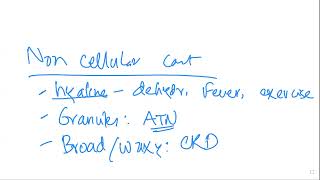 Non cellular cast
- hyaline - dehydr, Fever, exercise
- Granules: ATN
- Broad/waxy: CKD